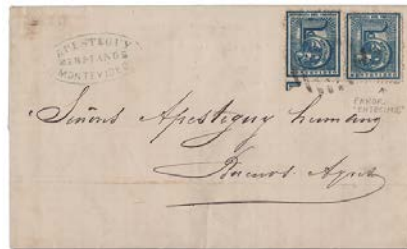 APESTEGUY
HERMANOS
MONTEVIDEO
5
5
ERROR
Señores Apesteguy hermanos
Buenos Ayres